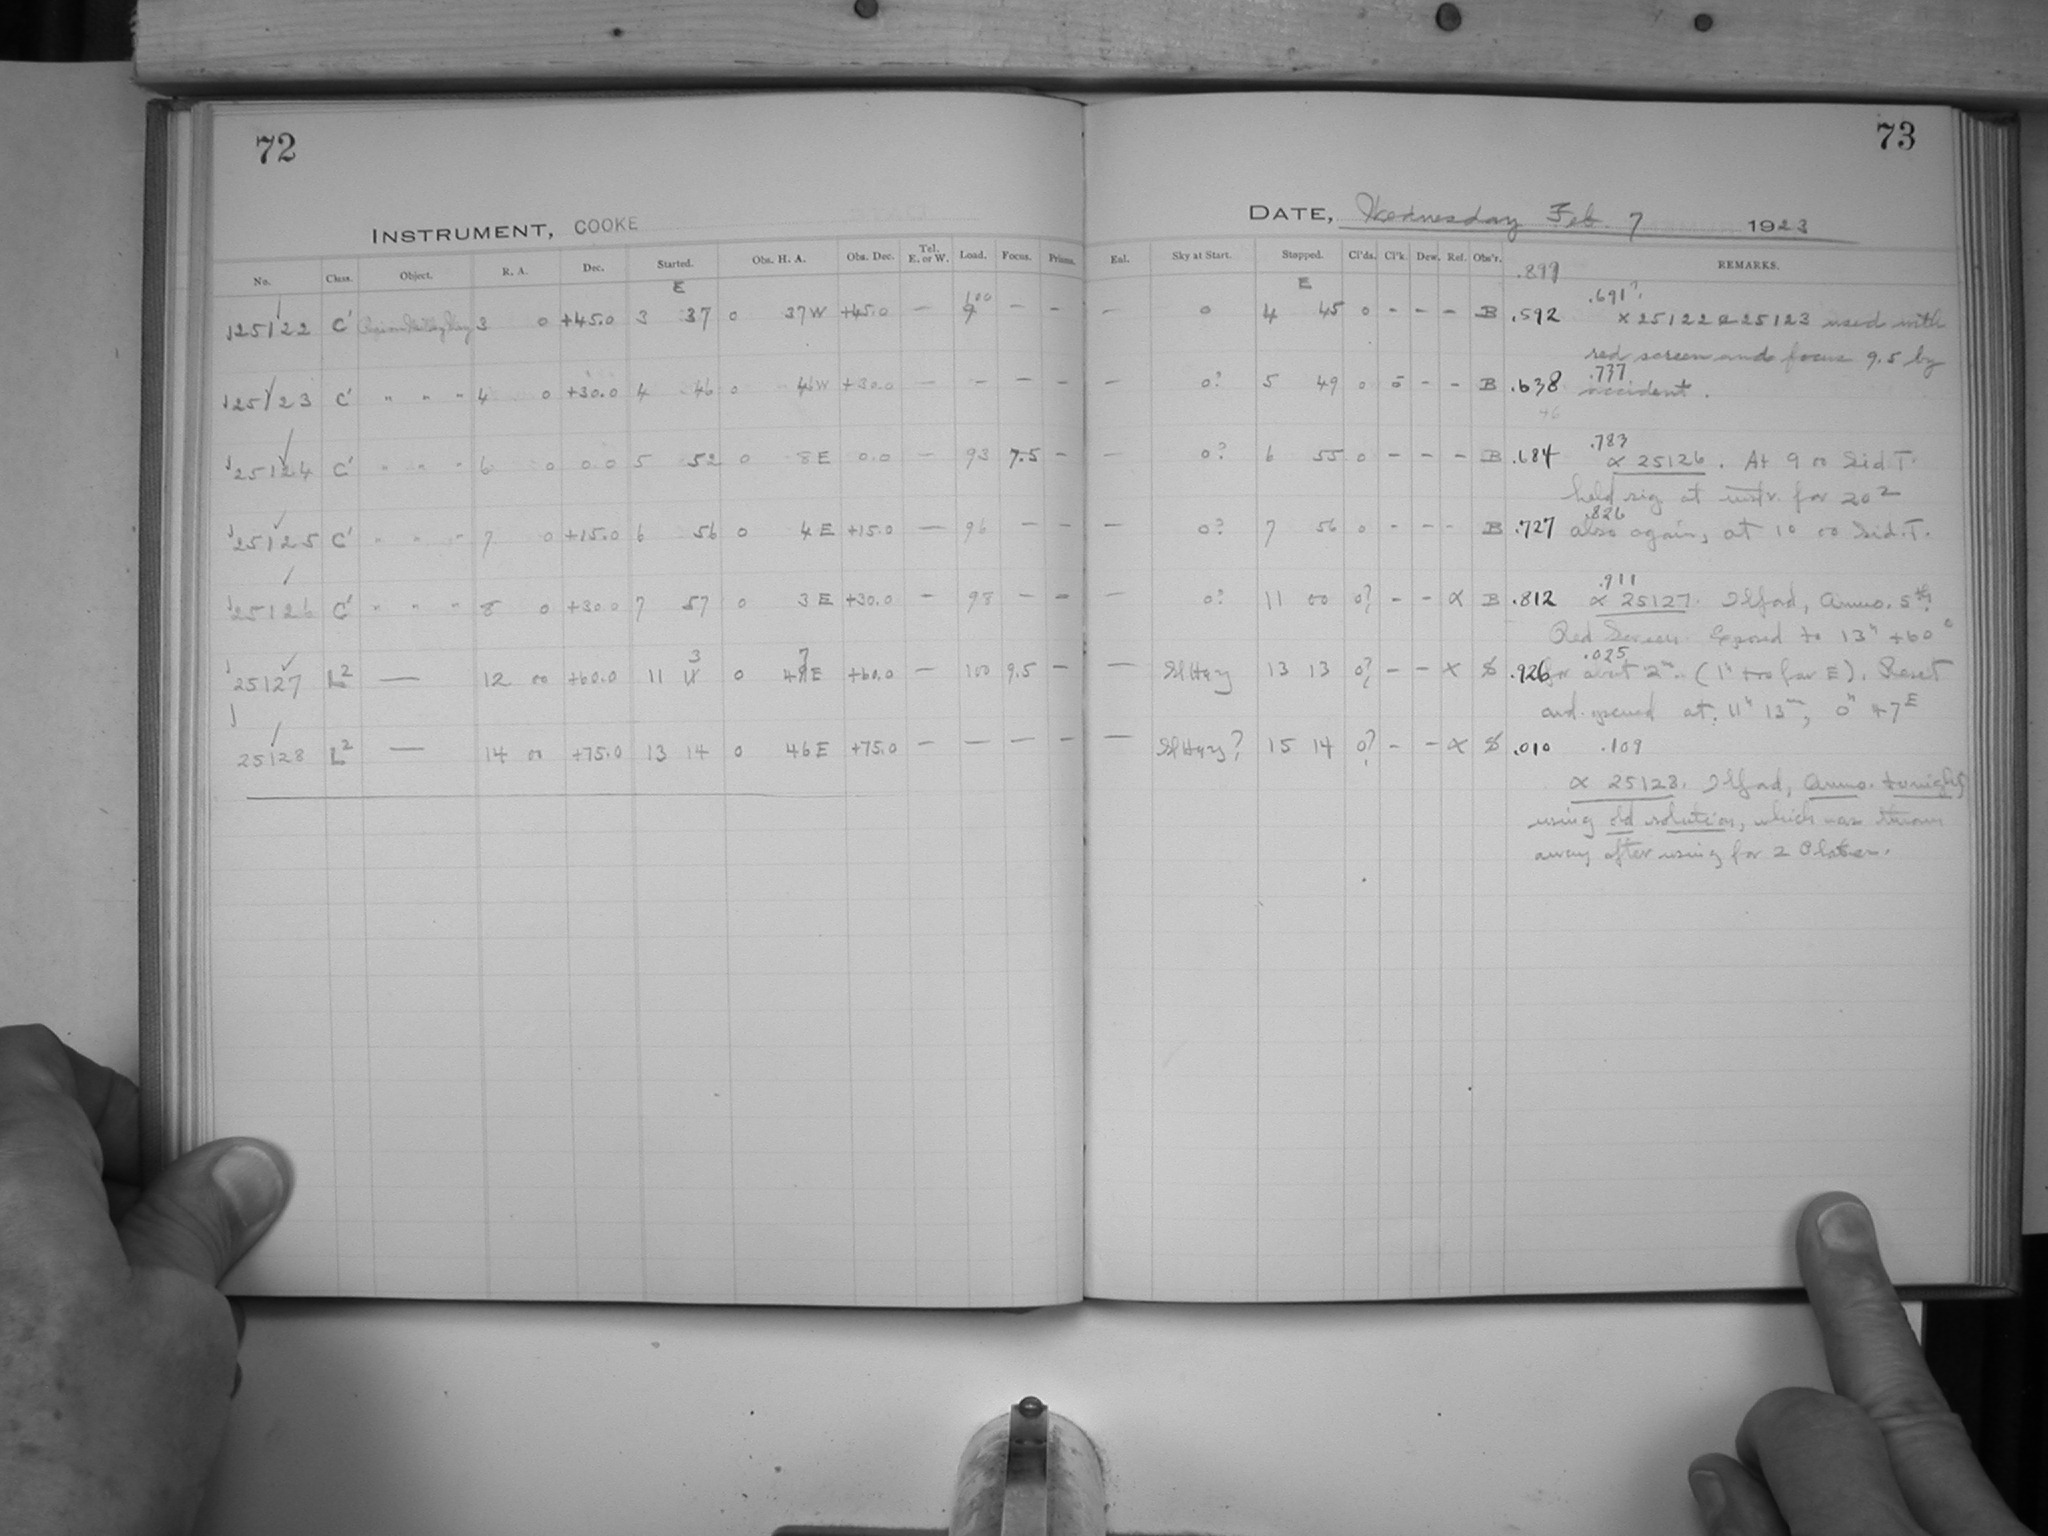 72
INSTRUMENT, COOKE
No. Class. Object. R. A. Dec. Started. Obs. H. A. Obs. Dec. Tel. E. or W. Load. Focus. Prisms.
E
25122 C' 3 0 +45.0 3 37 0 37 W +45.0 — 100 — —
25123 C' " " " 4 0 +30.0 4 46 0 46 W +30.0 — — — —
25124 C' " " " 6 0 0.0 5 52 0 8 E 0.0 — 93 7.5 —
25125 C' " " " 7 0 +15.0 6 56 0 4 E +15.0 — 96 — —
25126 C' " " " 8 0 +30.0 7 57 0 3 E +30.0 — 98 — —
25127 L² — 12 00 +60.0 11 13 0 47 E +60.0 — 100 9.5 —
25128 L² — 14 00 +75.0 13 14 0 46 E +75.0 — — — —
73
DATE, Wednesday Feb. 7 1923
Eal. Sky at Start. Stopped. Cl'ds. Cl'k Dew. Ref. Obs'r. REMARKS.
.899
E
— 0 4 45 0 - - - B .592 .691?
x 25122 & 25123 used with
red screen and focus 9.5 by
— 0? 5 49 0 ō - - B .638 .737
accident.
46
0? 6 55 0 - - - B .684 .783
x 25126. At 9 00 Sid T.
held rig at instr. for 20
— 0? 7 56 0 - - - B .727 .826
also again, at 10 00 Sid. T.
— 0? 11 00 0? - - x B .812 .911
x 25127. Ilford, Ammo. 5th
Red Screen. Exposed to 13h +60°
— Sl Hazy 13 13 0? - - x .926 .025
for about 2m. (1h too far E). Reset
and opened at 11h 13m, 0h 47E
— Sl Hazy? 15 14 0? - - x .010 .109
x 25128. Ilford, Ammo. tonight
using old solution, which was thrown
away after using for 2 Plates.